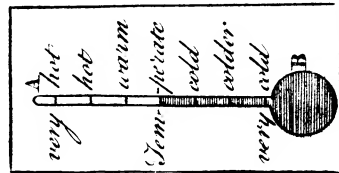 A
very hot
hot
warm
Tem- perate
cold
colder.
very cold
B